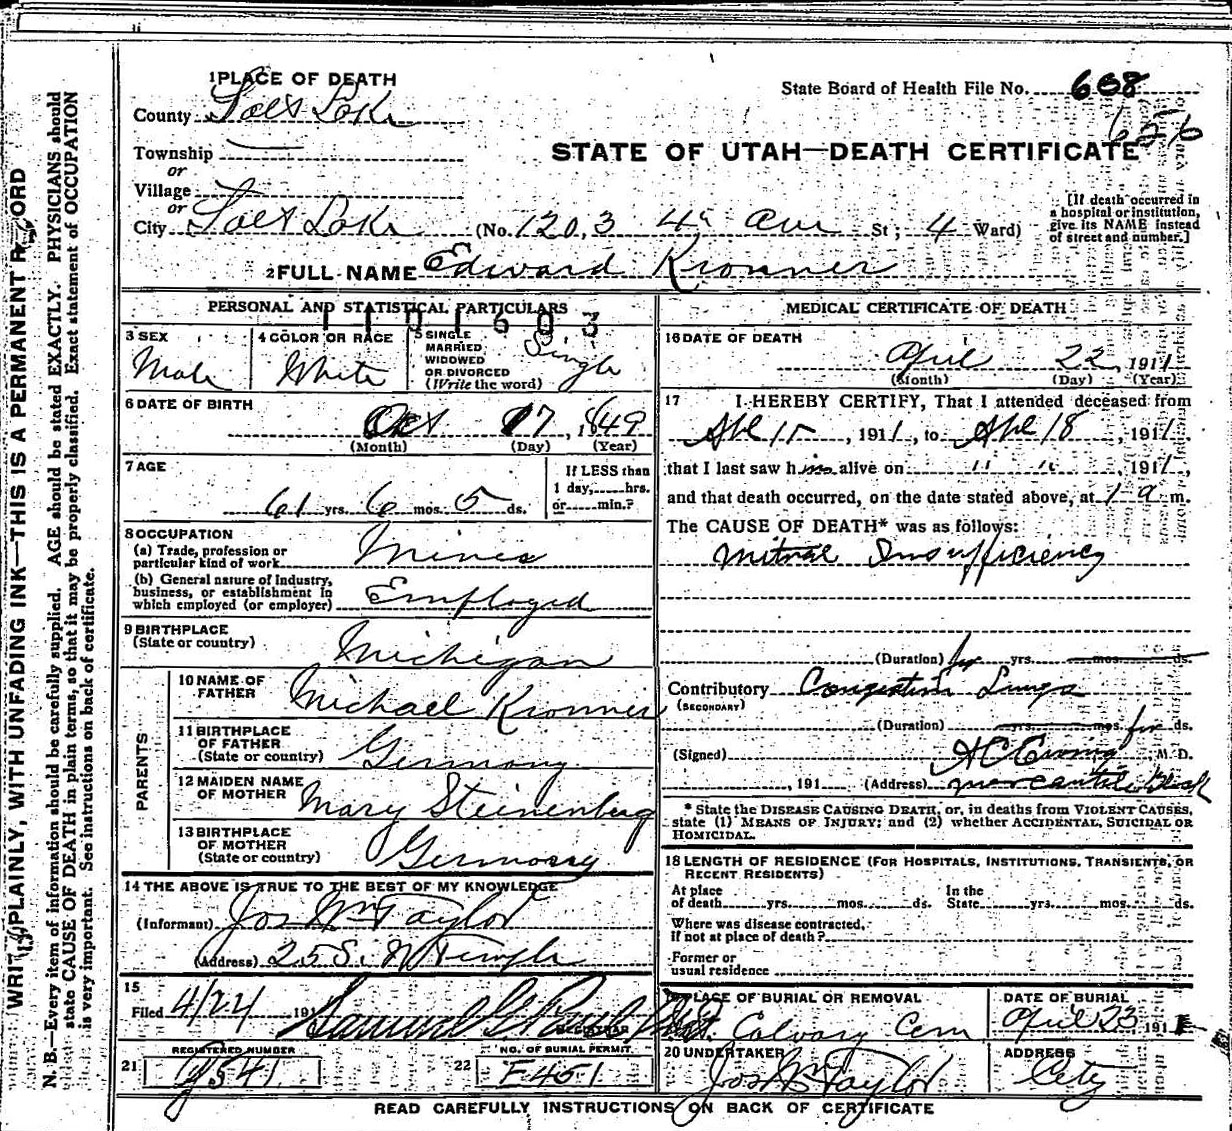 1 PLACE OF DEATH
State Board of Health File No. 608
656
County Salt Lake
Township
or
Village
or
City Salt Lake (No. 1203 4th Ave St; 4 Ward)
STATE OF UTAH—DEATH CERTIFICATE
[If death occurred in
a hospital or institution,
give its NAME instead
of street and number.]
2 FULL NAME Edward Kronner
PERSONAL AND STATISTICAL PARTICULARS
1101603
3 SEX
Male
4 COLOR OR RACE
White
5 SINGLE
MARRIED
WIDOWED
OR DIVORCED
(Write the word)
Single
6 DATE OF BIRTH
Oct 17, 1849
(Month) (Day) (Year)
7 AGE
61 yrs. 6 mos. 5 ds.
If LESS than
1 day, hrs.
or min.?
8 OCCUPATION
(a) Trade, profession or
particular kind of work Miner
(b) General nature of Industry,
business, or establishment in
which employed (or employer) Employed
9 BIRTHPLACE
(State or country) Michigan
PARENTS
10 NAME OF
FATHER Michael Kronner
11 BIRTHPLACE
OF FATHER
(State or country) Germany
12 MAIDEN NAME
OF MOTHER Mary Steinenberg
13 BIRTHPLACE
OF MOTHER
(State or country) Germany
14 THE ABOVE IS TRUE TO THE BEST OF MY KNOWLEDGE
(Informant) Jos Wm Taylor
(Address) 25 S. W Temple
15
Filed 4/24 191 Samuel G. Paul
REGISTRAR
21 REGISTERED NUMBER
541
22 NO. OF BURIAL PERMIT
E451
MEDICAL CERTIFICATE OF DEATH
16 DATE OF DEATH
April 22, 1911
(Month) (Day) (Year)
17 I HEREBY CERTIFY, That I attended deceased from
Apl 15, 1911, to Apl 18, 1911,
that I last saw him alive on " ", 1911,
and that death occurred, on the date stated above, at 1 a m.
The CAUSE OF DEATH* was as follows:
Mitral Insufficiency
(Duration) yrs. mos. ds.
Contributory Congestion Lungs
(SECONDARY)
(Duration) yrs. mos. ds.
(Signed) M. D.
, 191 (Address) Mercantile Block
* State the DISEASE CAUSING DEATH, or, in deaths from VIOLENT CAUSES,
state (1) MEANS OF INJURY; and (2) whether ACCIDENTAL, SUICIDAL OR
HOMICIDAL.
18 LENGTH OF RESIDENCE (FOR HOSPITALS, INSTITUTIONS, TRANSIENTS, OR
RECENT RESIDENTS)
At place
of death yrs. mos. ds.
In the
State yrs. mos. ds.
Where was disease contracted,
if not at place of death?
Former or
usual residence
19 PLACE OF BURIAL OR REMOVAL
Mt. Calvary Cem
DATE OF BURIAL
April 23 1911
20 UNDERTAKER
Jos Wm Taylor
ADDRESS
City
READ CAREFULLY INSTRUCTIONS ON BACK OF CERTIFICATE
WRITE PLAINLY, WITH UNFADING INK—THIS IS A PERMANENT RECORD
N. B.—Every item of information should be carefully supplied. AGE should be stated EXACTLY. PHYSICIANS should
state CAUSE OF DEATH in plain terms, so that it may be properly classified. Exact statement of OCCUPATION
is very important. See instructions on back of certificate.